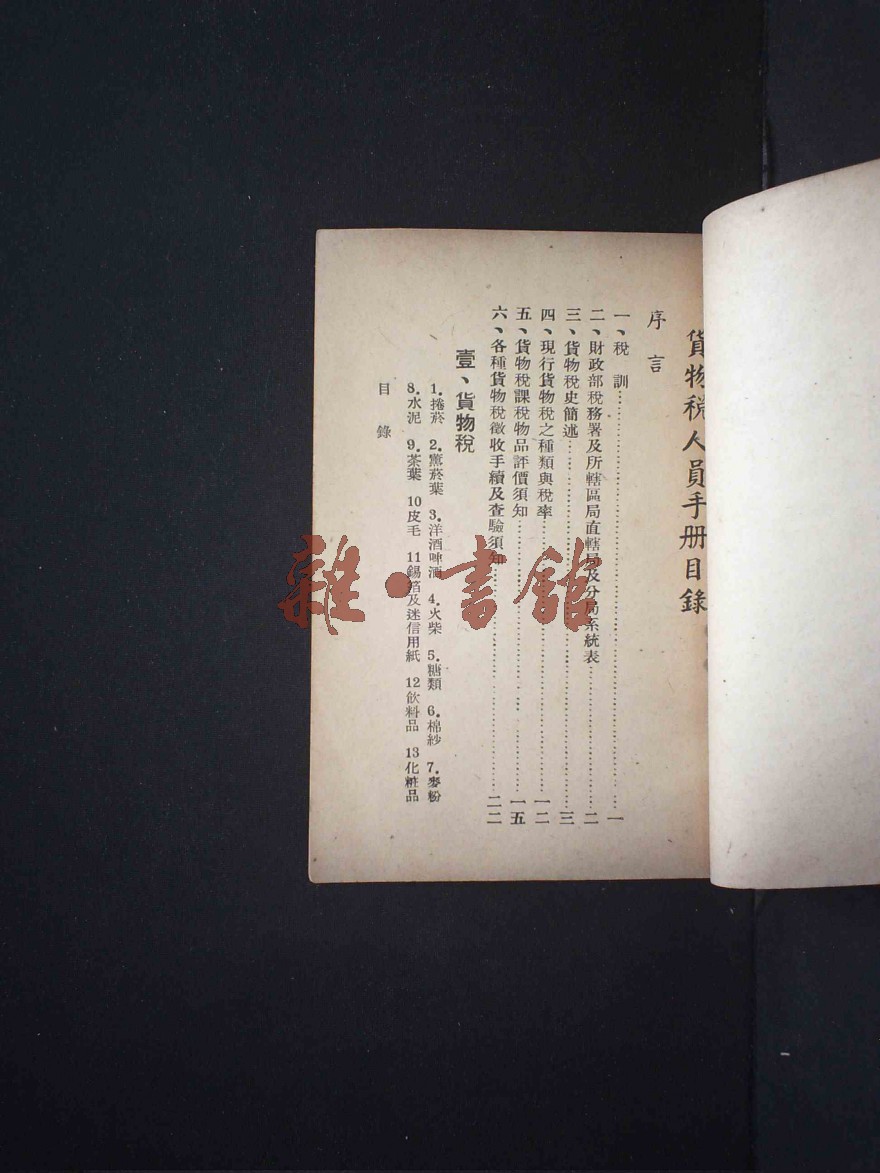 貨物稅人員手册目錄
序言
一、稅訓……一
二、財政部稅務署及所轄區局直轄局及分局系統表……二
三、貨物稅史簡述……三
四、現行貨物稅之種類與稅率……一二
五、貨物稅課稅物品評價須知……一五
六、各種貨物稅徵收手續及查驗須知……二二
壹、貨物稅
1.捲菸 2.薰菸葉 3.洋酒啤酒 4.火柴 5.糖類 6.棉紗 7.麥粉
8.水泥 9.茶葉 10皮毛 11錫箔及迷信用紙 12飲料品 13化粧品
目錄
雜·書館